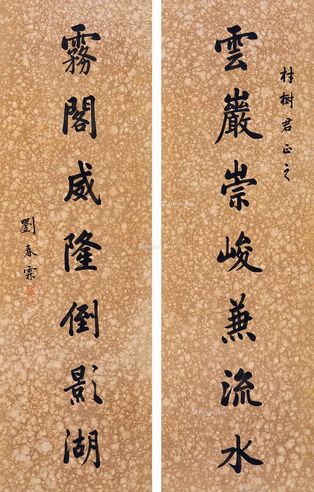 村樹君正之
雲巖崇峻兼流水
霧閣威隆倒影湖
劉春霖